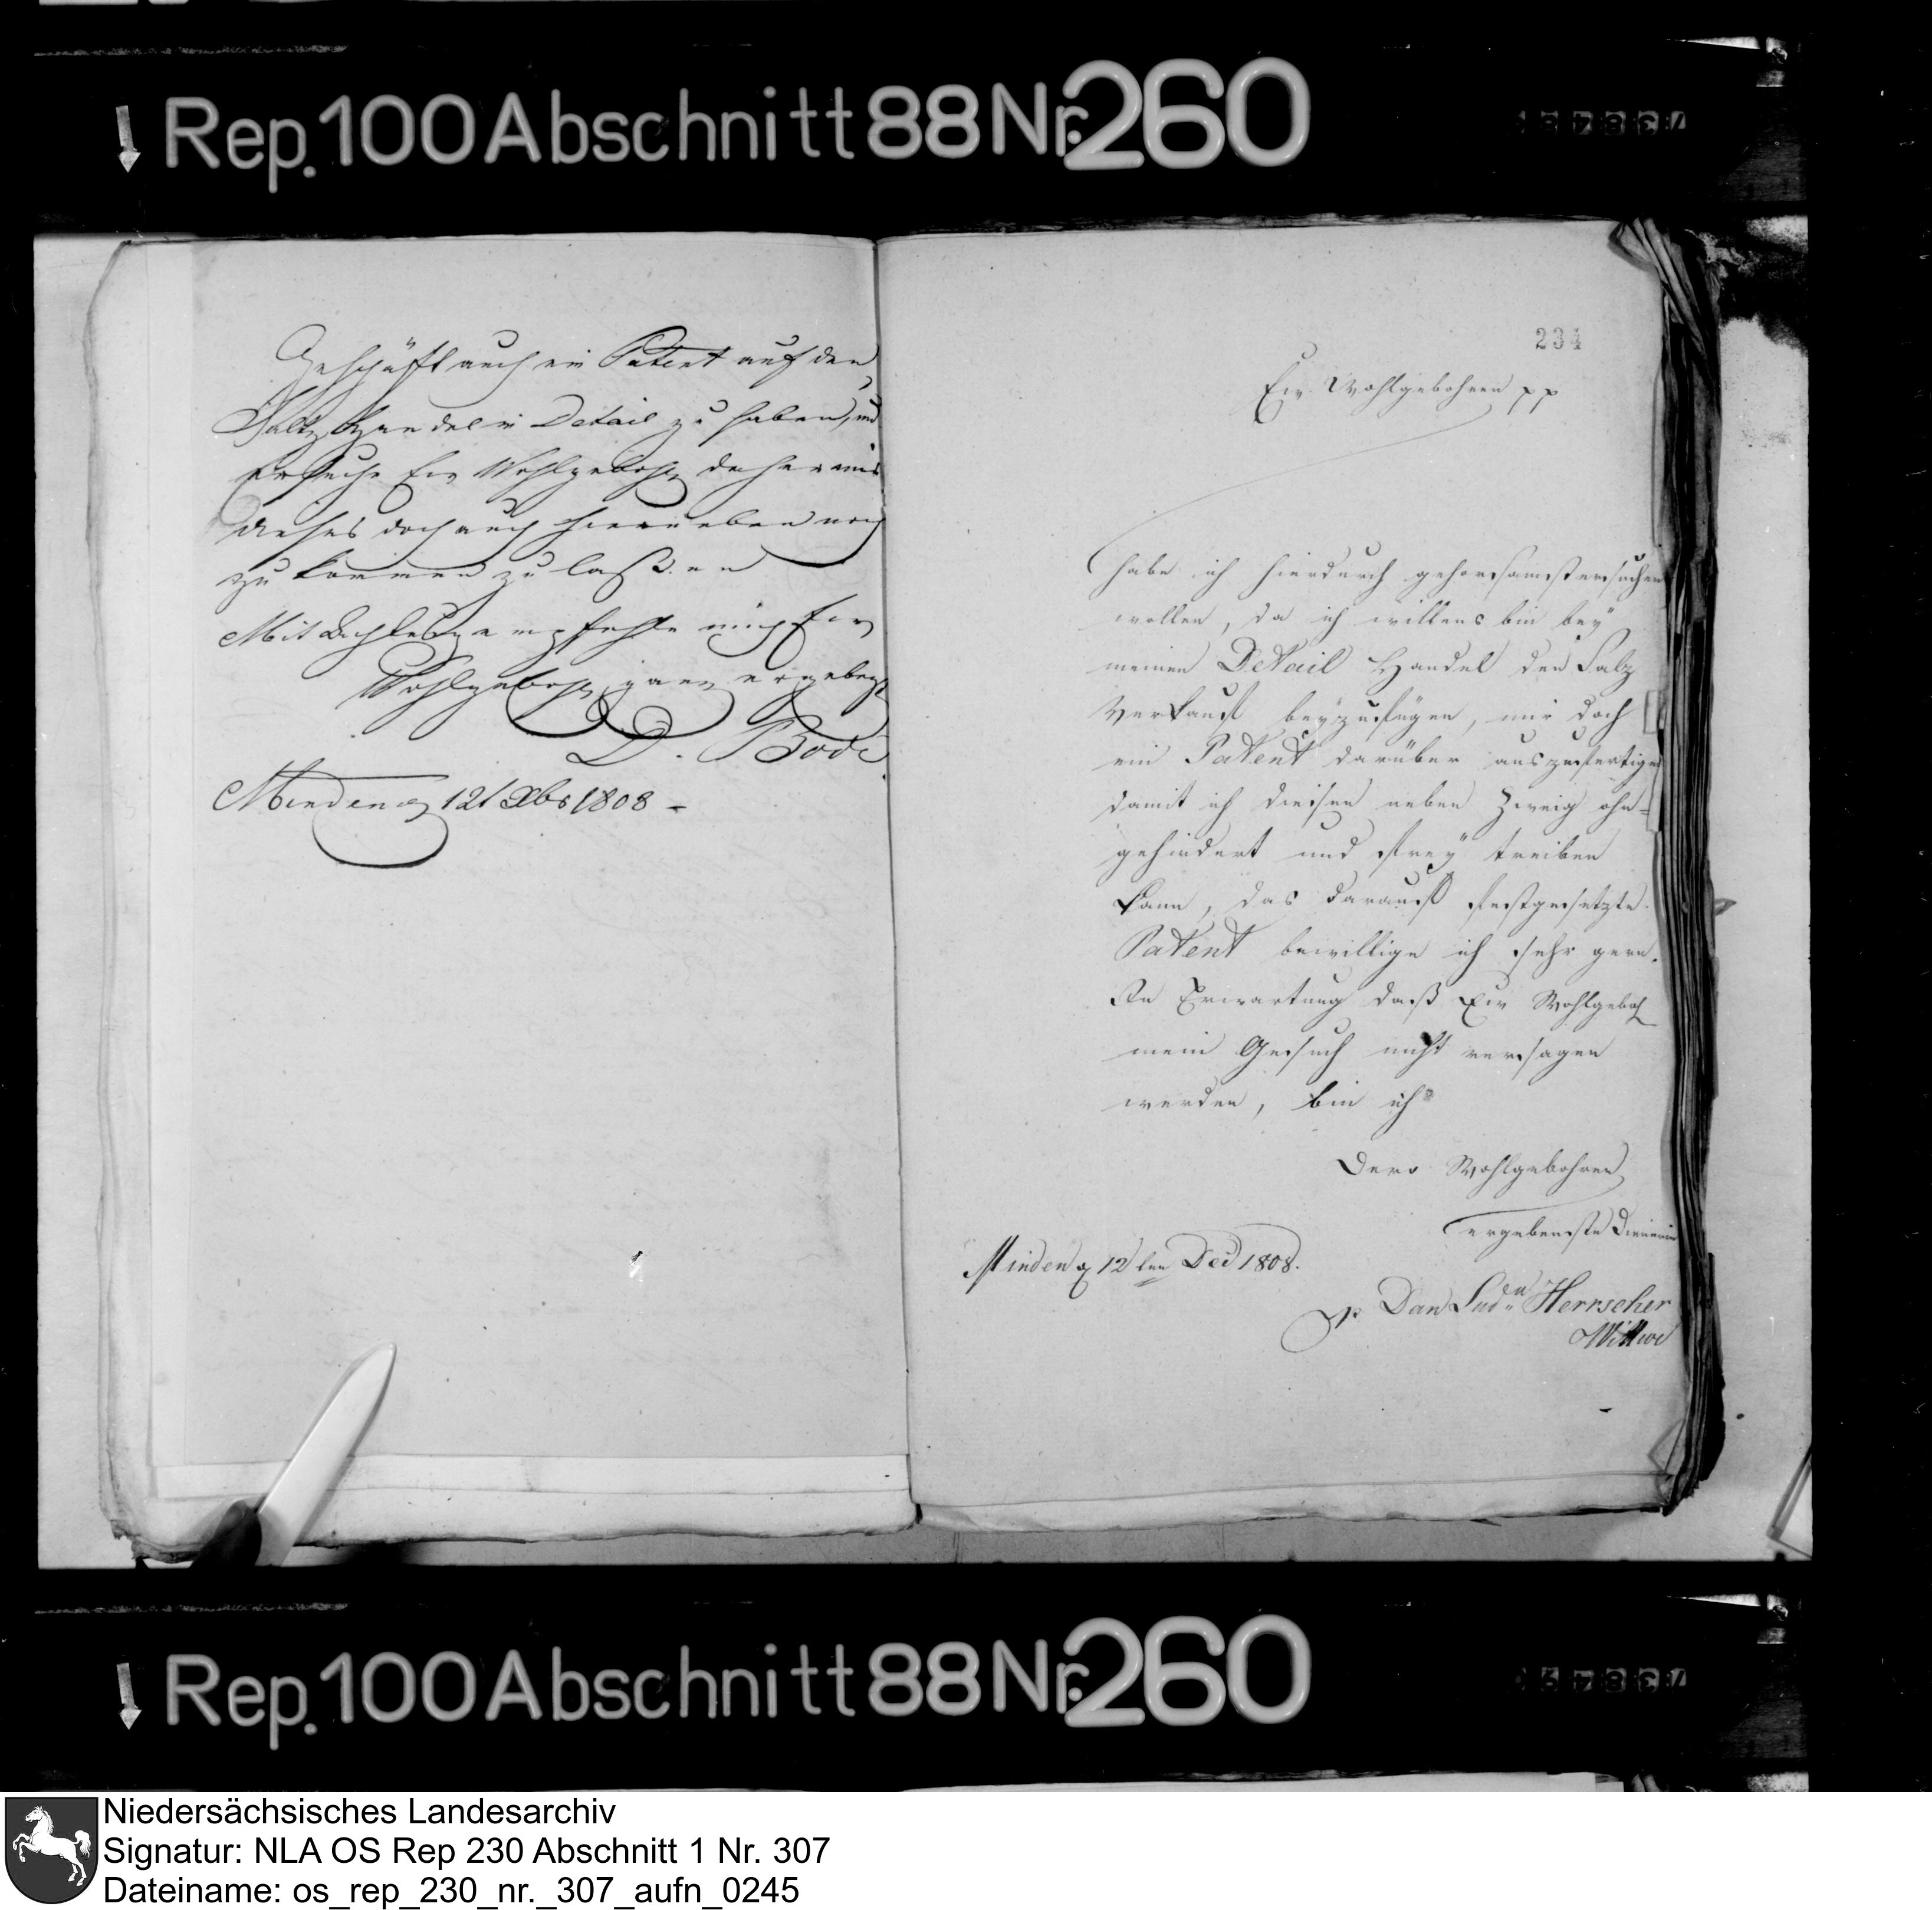 Rep. 100 Abschnitt 88 Nr. 260
Geschäft auch ein Patent auf den
Saltz Handel in Detail zu haben, und
ersuche Ew Wohlgebohr daher mir
dieses doch auch hierneben noch
zu kommen zu laßen
Mit Achtung empfehle mich Ew
Wohlgebohr ganz ergebenst
D. Bode
Minden 12t Xbr 1808 -
234
Ew. Wohlgebohren pp
habe ich hierdurch gehorsamst ersuchen
wollen, da ich willens bin bey
meinen Detail Handel den Salz
Verkauf beyzufügen, mir doch
ein Patent darüber auszufertigen
damit ich diesen neben Zweig ohn=
gehindert und frey treiben
kann, das darauf festgesetzte
Patent bewillige ich sehr gern.
In Erwartung daß Ew Wohlgeboh
mein Gesuch nicht versagen
werden, bin ich
Dero Wohlgebohren
ergebenste Dienerin
Minden 12ten Dec 1808.
Dan Lud Herrscher
Wittwe
Rep. 100 Abschnitt 88 Nr. 260
Niedersächsisches Landesarchiv
Signatur: NLA OS Rep 230 Abschnitt 1 Nr. 307
Dateiname: os_rep_230_nr._307_aufn_0245